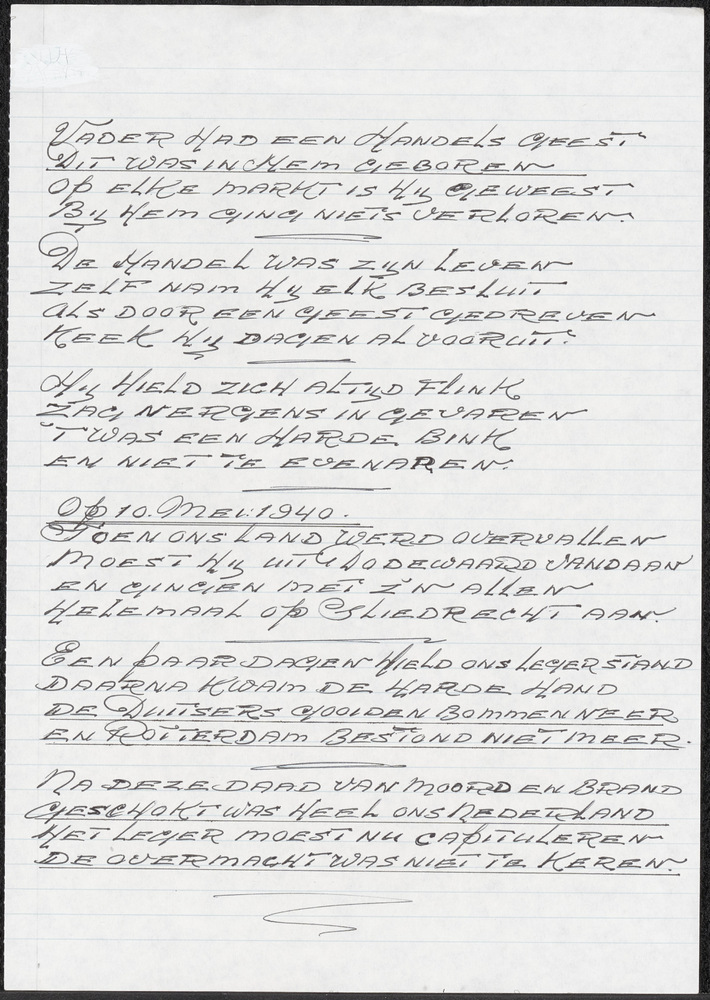 VADER HAD EEN HANDELS GEEST
DIT WAS IN HEM GEBOREN
OP ELKE MARKT IS HIJ GEWEEST
BIJ HEM GING NIETS VERLOREN.
DE HANDEL WAS ZIJN LEVEN
ZELF NAM HIJ ELK BESLUIT
ALS DOOR EEN GEEST GEDREVEN
KEEK HIJ DAGEN AL VOORUIT.
HIJ HIELD ZICH ALTIJD FLINK
ZAG NERGENS IN GEVAREN
'T WAS EEN HARDE BINK
EN NIET TE EVENAREN.
OP 10. MEI. 1940.
TOEN ONS LAND WERD OVERVALLEN
MOEST HIJ UIT DODEWAARD VANDAAN
EN GINGEN MET Z'N ALLEN
HELEMAAL OP SLIEDRECHT AAN.
EEN PAAR DAGEN HIELD ONS LEGER STAND
DAARNA KWAM DE HARDE HAND
DE DUITSERS GOOIDEN BOMMEN NEER
EN ROTTERDAM BESTOND NIET MEER.
NA DEZE DAAD VAN MOORD EN BRAND
GESCHOKT WAS HEEL ONS NEDERLAND
HET LEGER MOEST NU CAPITULEREN
DE OVERMACHT WAS NIET TE KEREN.